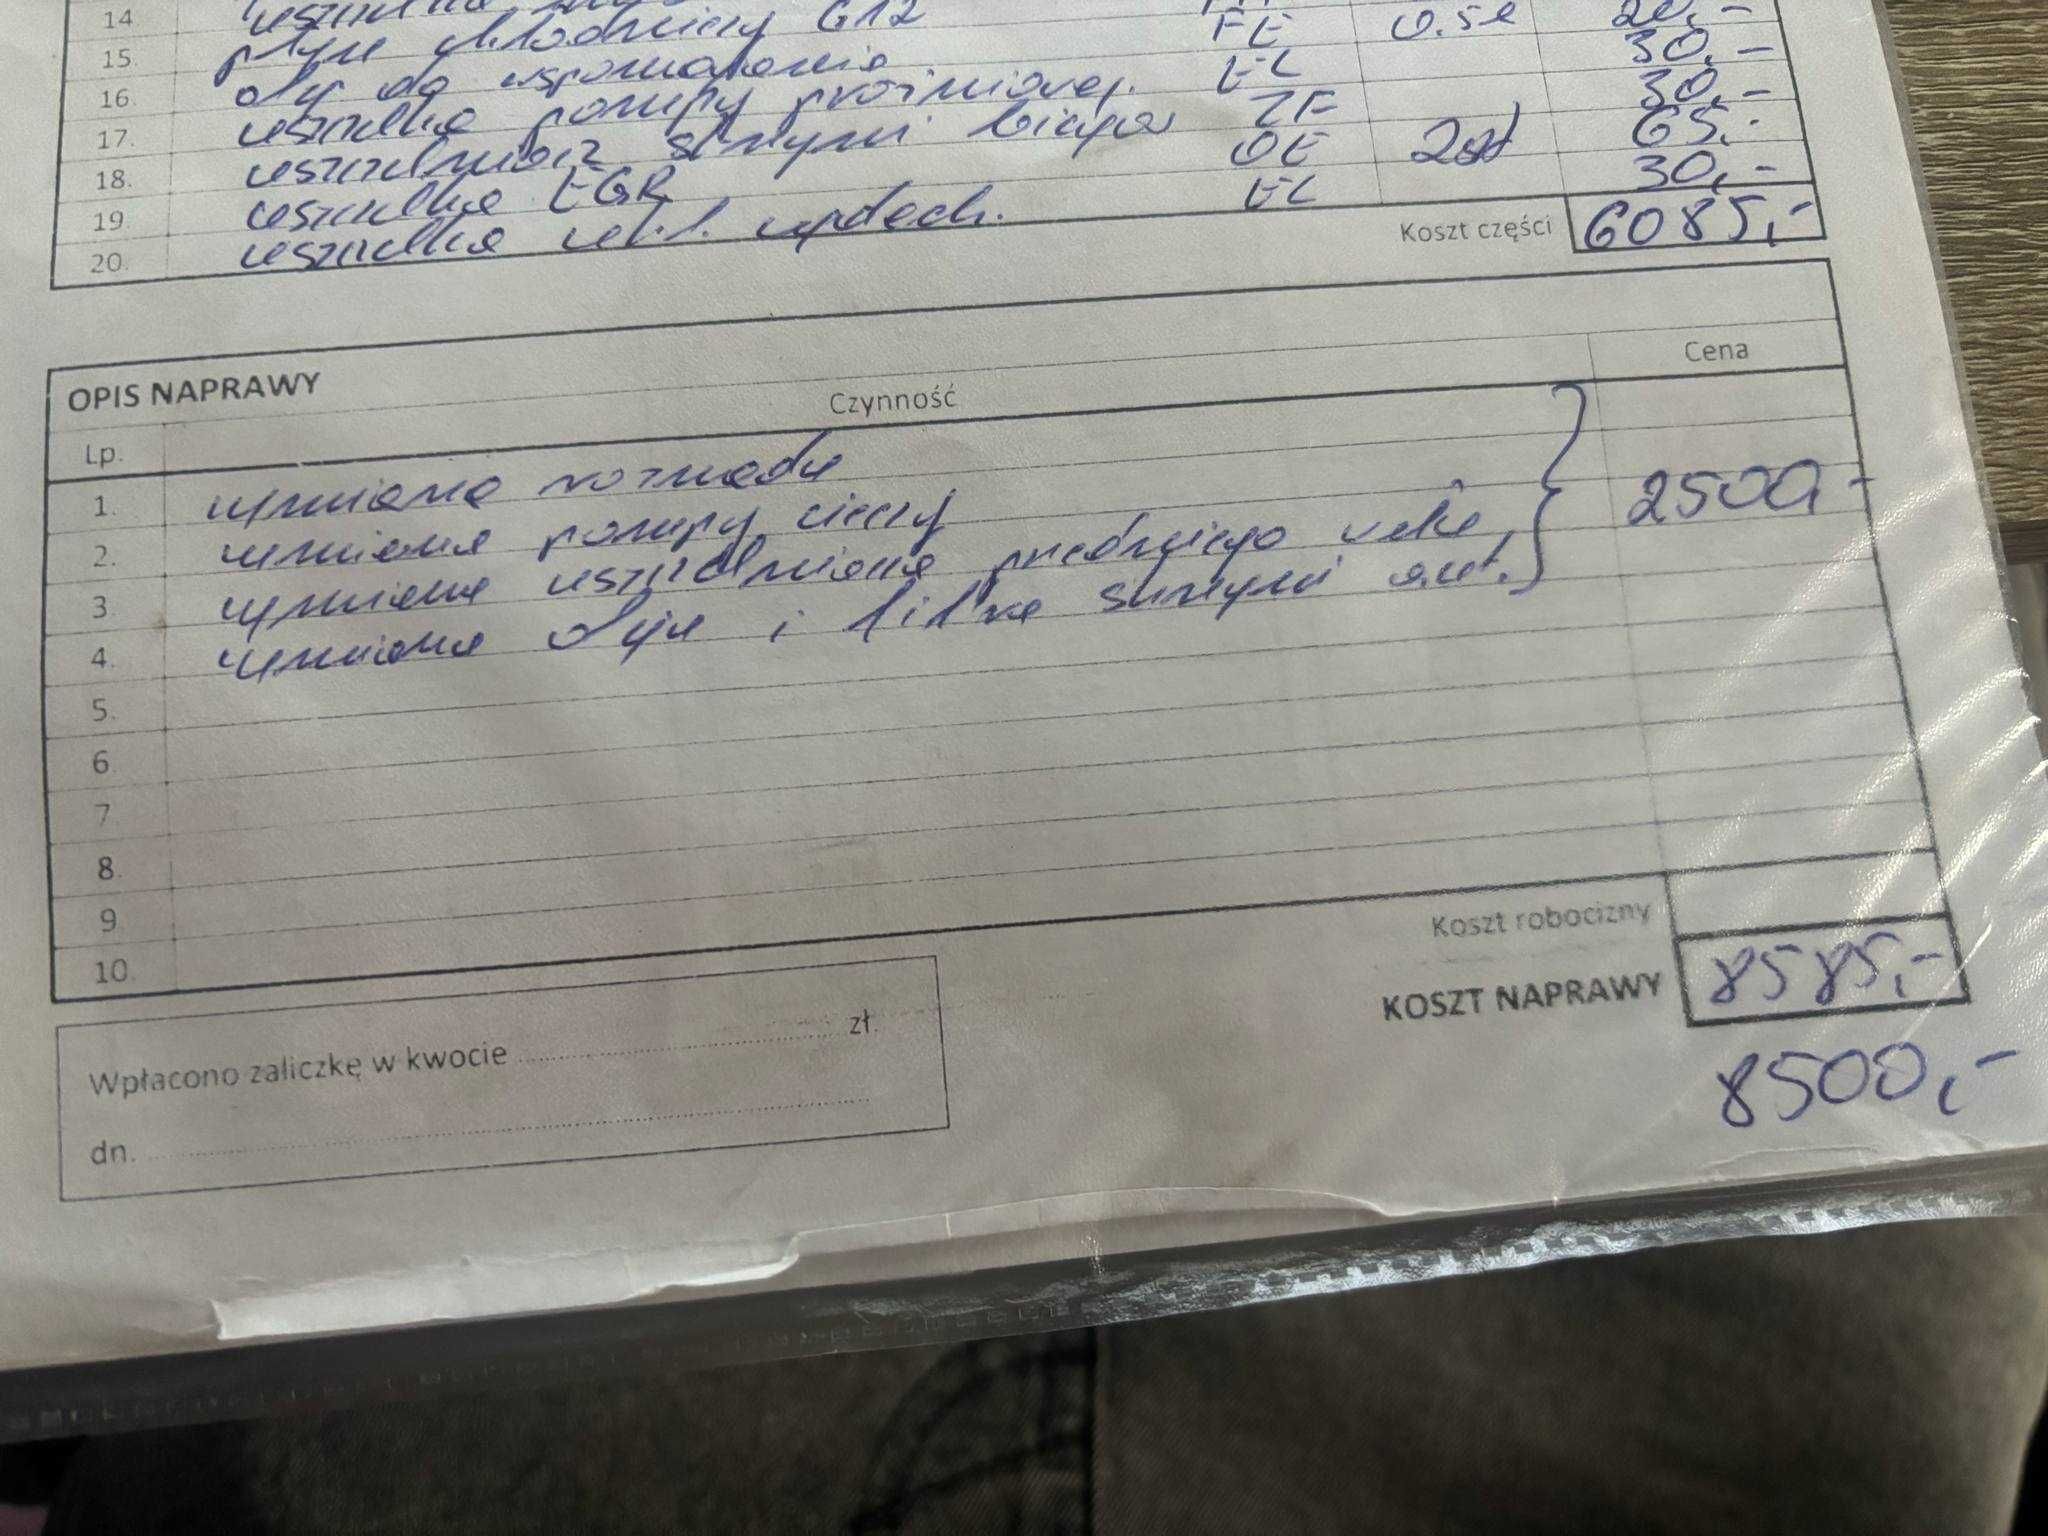 14 uszczelka
15 płyn chłodniczy G12 FE 0.5l 20,-
16. olej do wspomagania EL 30,-
17. uszczelka pompy próżniowej. ZF 30,-
18. uszczelniacz skrzyni biegów OE 2szt 65,-
19. uszczelka EGR EL 30,-
20. uszczelka kol. wydech.
Koszt części 6085,-
OPIS NAPRAWY
Lp. Czynność Cena
1. wymiana rozrządu
2. wymiana pompy cieczy 2500,-
3. wymiana uszczelnienia przedniego wału,
4. wymiana oleju i filtra skrzyni aut.
5.
6.
7.
8.
9
10.
Koszt robocizny
KOSZT NAPRAWY 8585,-
8500,-
Wpłacono zaliczkę w kwocie zł.
dn.